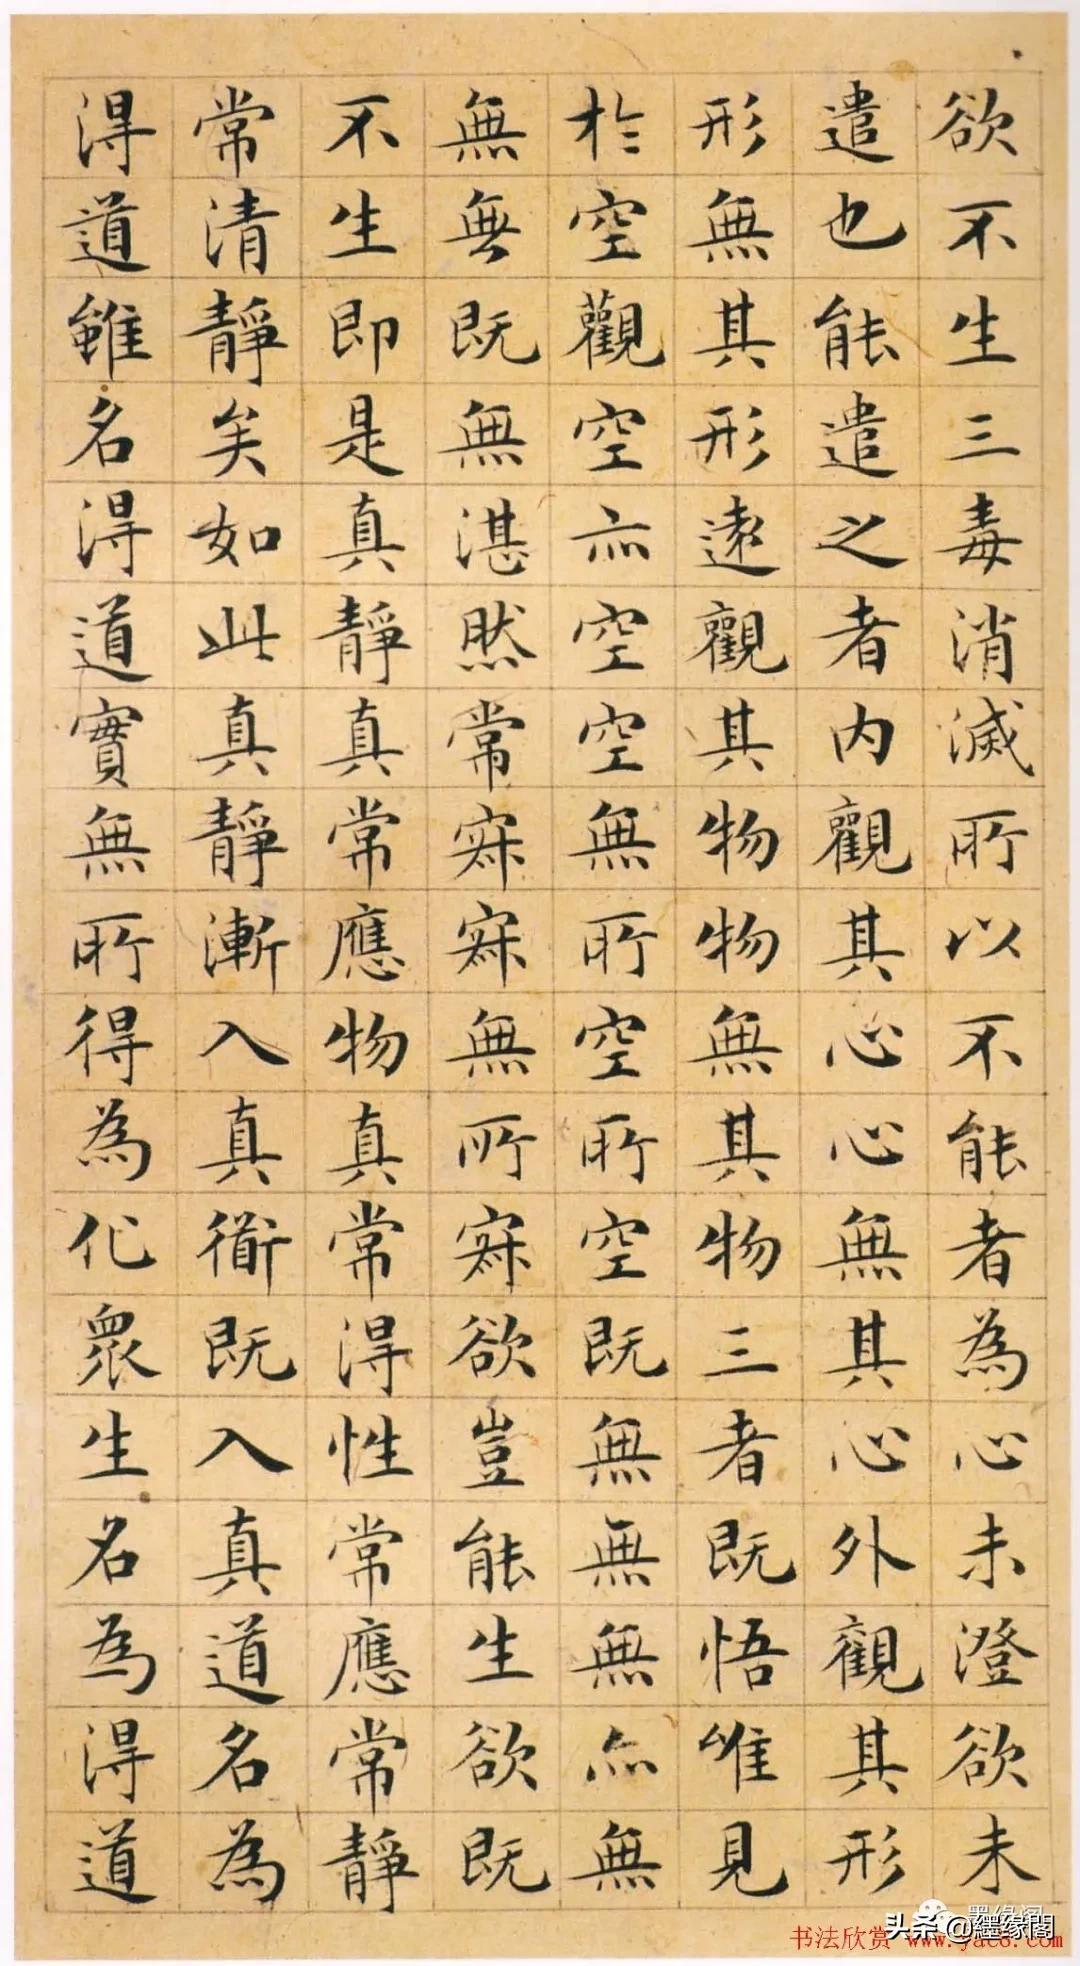 欲不生三毒消滅所以不能者為心未澄欲未
遣也能遣之者内觀其心心無其心外觀其形
形無其形遠觀其物物無其物三者既悟唯見
於空觀空亦空空無所空所空既無無無亦無
無無既無湛然常寂寂無所寂欲豈能生欲既
不生即是真靜真常應物真常得性常應常靜
常清靜矣如此真靜漸入真衜既入真道名為
得道雖名得道實無所得為化眾生名為得道
墨缘阁
头条 @纆缘阁
书法欣赏 www.yac8.com